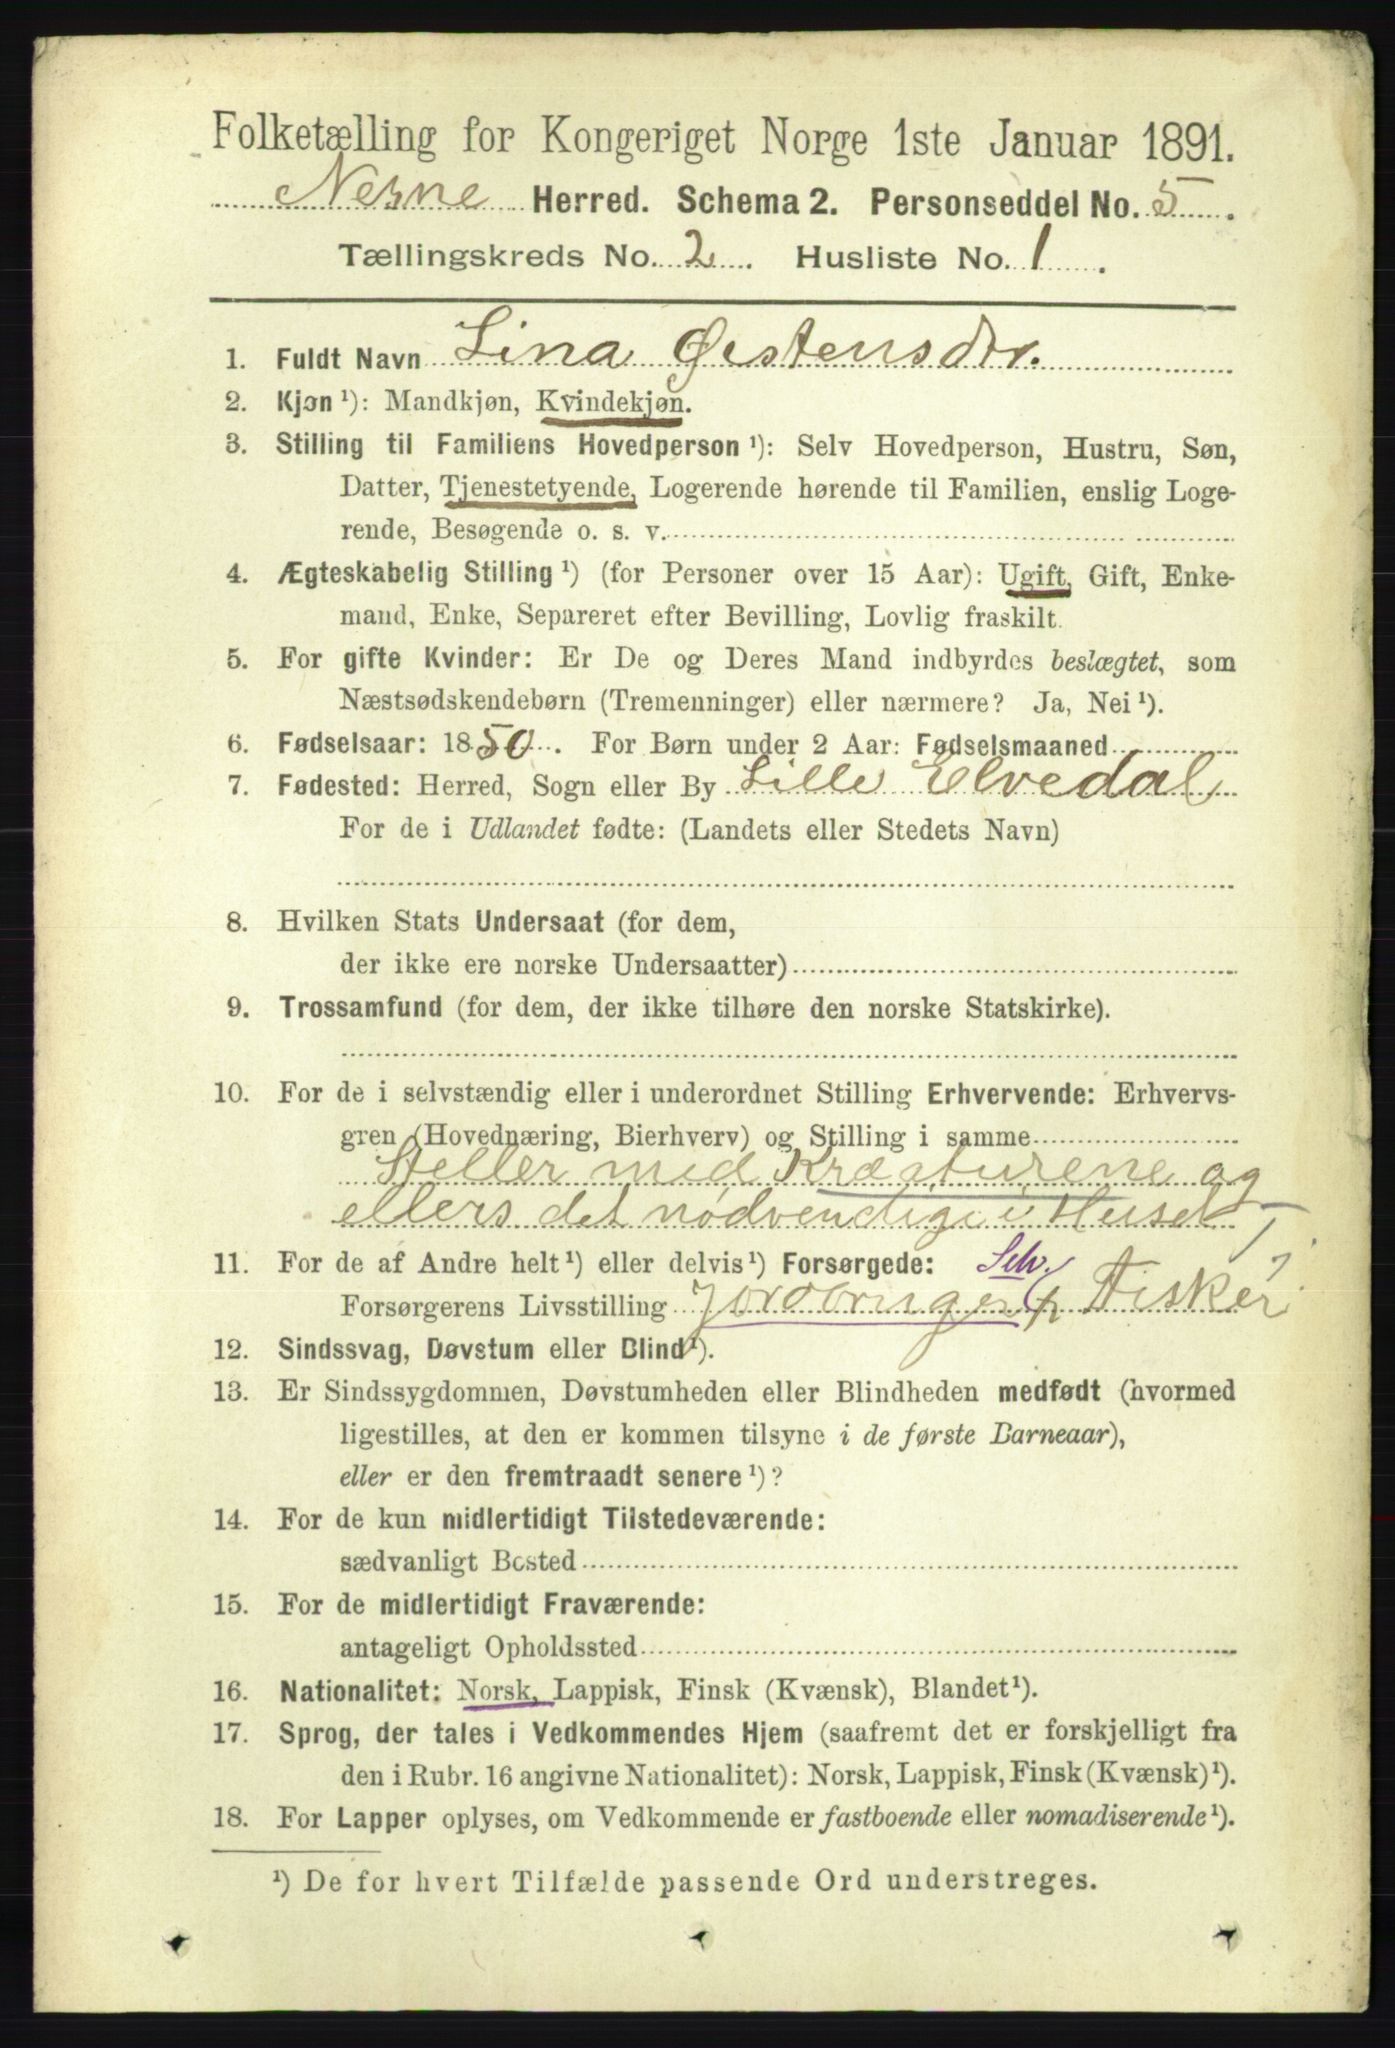 Folketælling for Kongeriget Norge 1ste Januar 1891.
Nesne Herred. Schema 2. Personseddel No. 5.
Tællingskreds No. 2. Husliste No. 1.
1. Fuldt Navn Lina Østensdtr.
2. Kjøn ¹): Mandkjøn, Kvindekjøn.
3. Stilling til Familiens Hovedperson ¹): Selv Hovedperson, Hustru, Søn,
Datter, Tjenestetyende, Logerende hørende til Familien, enslig Loge-
rende, Besøgende o. s. v.
4. Ægteskabelig Stilling ¹) (for Personer over 15 Aar): Ugift, Gift, Enke-
mand, Enke, Separeret efter Bevilling, Lovlig fraskilt.
5. For gifte Kvinder: Er De og Deres Mand indbyrdes beslægtet, som
Næstsødskendebørn (Tremenninger) eller nærmere? Ja, Nei ¹).
6. Fødselsaar: 1850. For Børn under 2 Aar: Fødselsmaaned
7. Fødested: Herred, Sogn eller By Lille Elvedal
For de i Udlandet fødte: (Landets eller Stedets Navn)
8. Hvilken Stats Undersaat (for dem,
der ikke ere norske Undersaatter)
9. Trossamfund (for dem, der ikke tilhøre den norske Statskirke).
10. For de i selvstændig eller i underordnet Stilling Erhvervende: Erhvervs-
gren (Hovednæring, Bierhverv) og Stilling i samme
Steller med Kræaturene og
ellers det nødvendige i Huset
11. For de af Andre helt ¹) eller delvis ¹) Forsørgede: Selv.
Forsørgerens Livsstilling Jordbruger Fisker
12. Sindssvag, Døvstum eller Blind ¹).
13. Er Sindssygdommen, Døvstumheden eller Blindheden medfødt (hvormed
ligestilles, at den er kommen tilsyne i de første Barneaar),
eller er den fremtraadt senere ¹)?
14. For de kun midlertidigt Tilstedeværende:
sædvanligt Bosted
15. For de midlertidigt Fraværende:
antageligt Opholdssted
16. Nationalitet: Norsk, Lappisk, Finsk (Kvænsk), Blandet ¹).
17. Sprog, der tales i Vedkommendes Hjem (saafremt det er forskjelligt fra
den i Rubr. 16 angivne Nationalitet): Norsk, Lappisk, Finsk (Kvænsk) ¹).
18. For Lapper oplyses, om Vedkommende er fastboende eller nomadiserende ¹).
¹) De for hvert Tilfælde passende Ord understreges.